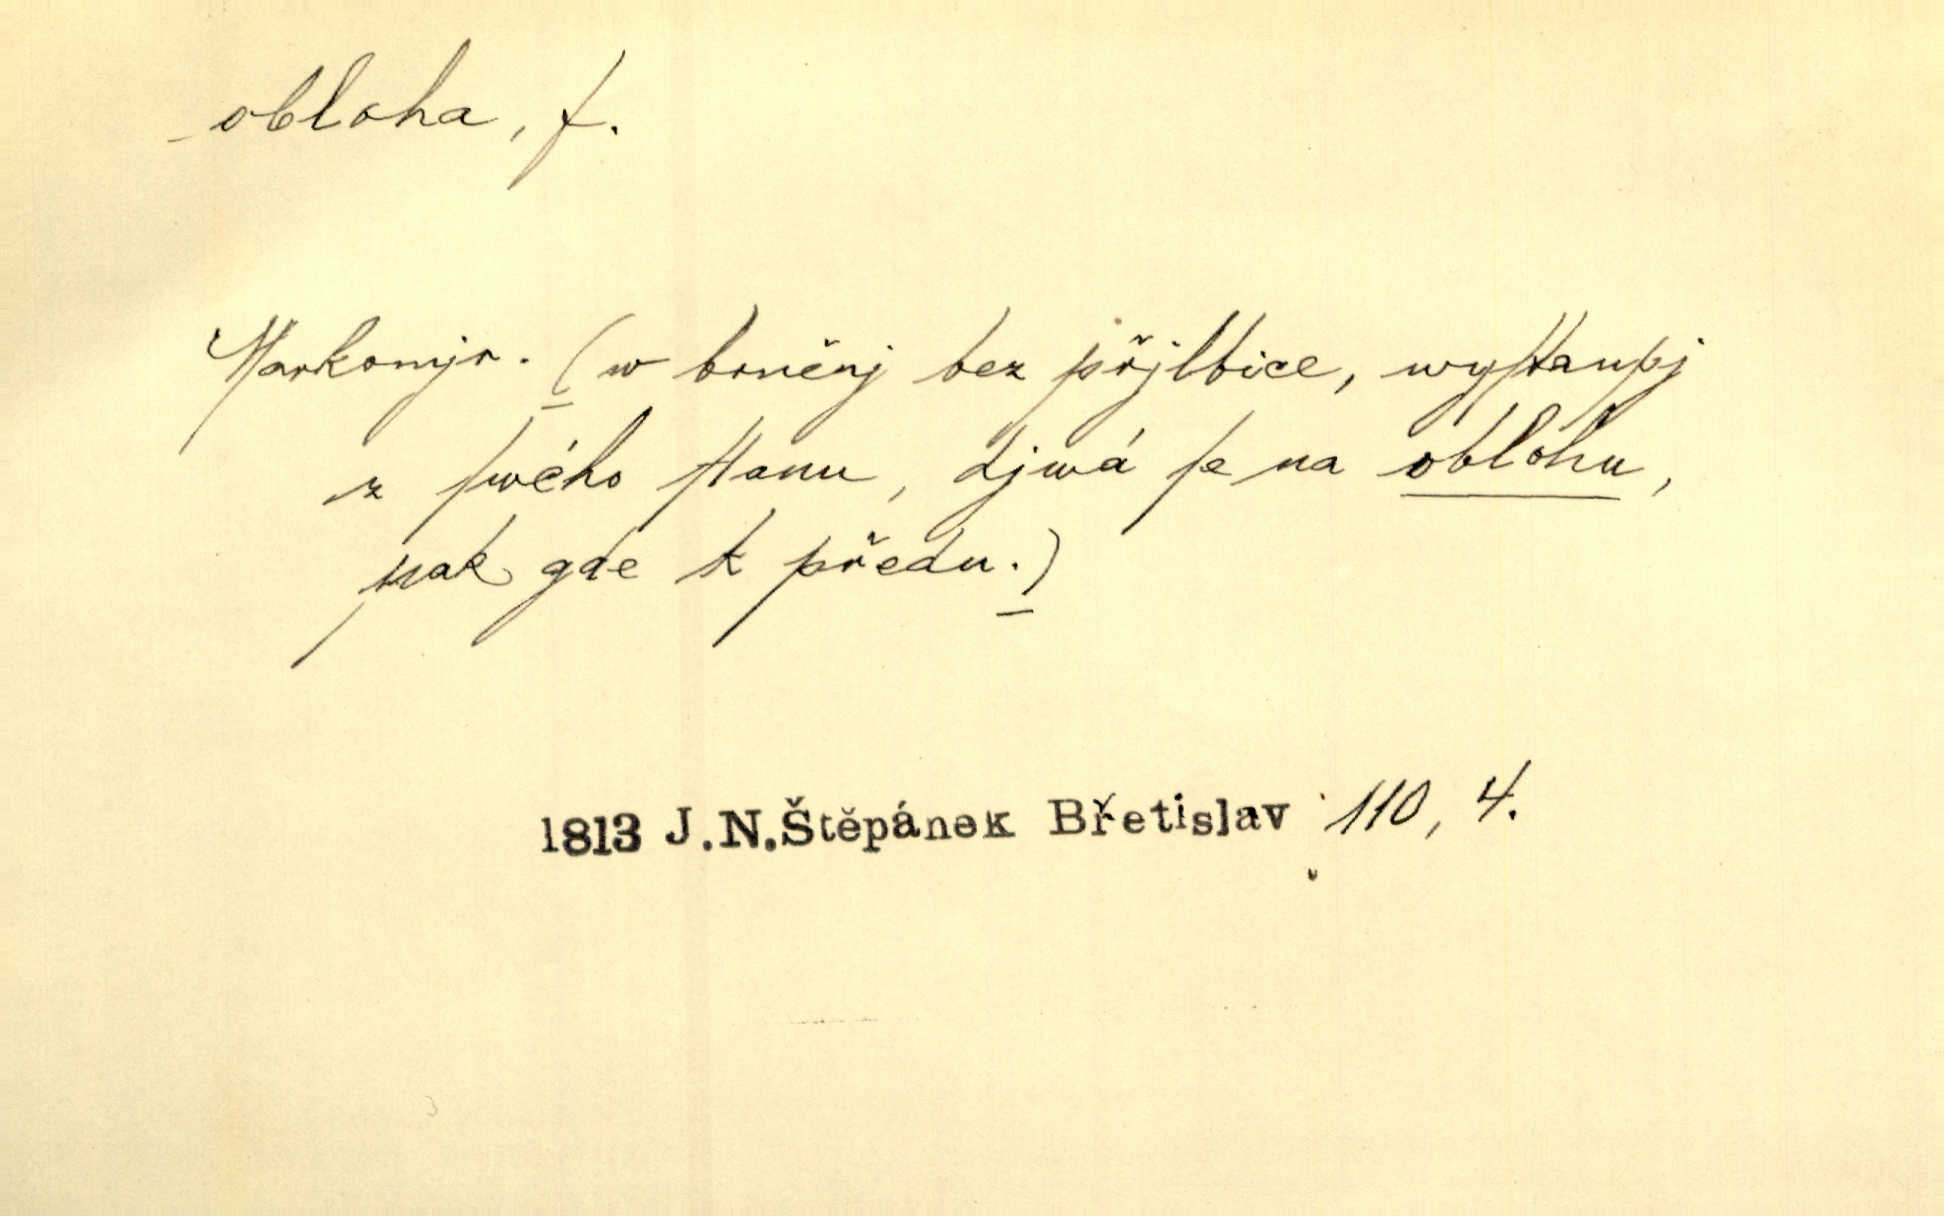 obloha, f.
Markomjr. (w brněnj bez přjlbice, wyſtaupj
z ſwého ſtanu, djwá ſe na oblohu,
pak gde k předu.)
1813 J.N.Štěpánek Břetislav 110, 4.